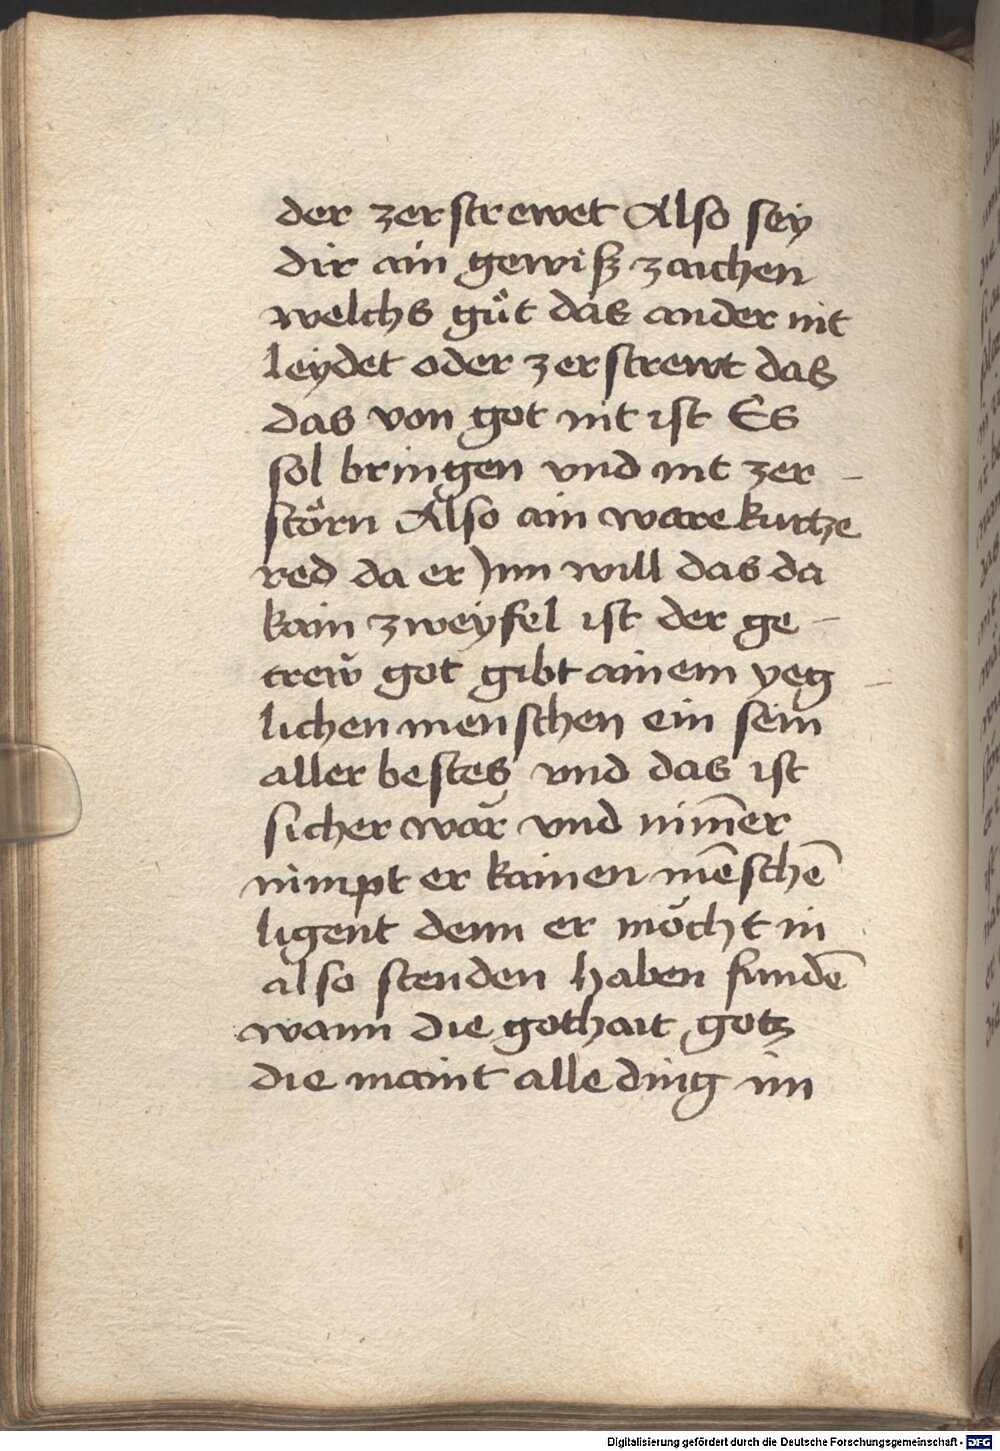 der zerstrewet Also sey
dir ain gewiß zaichen
welchs gůt das ander nit
leydet oder zerstrewt das
das von got nit ist Es
sol bringen vnd nit zer –
störn Also ain ware kurtze
red da er jnn will das da
kain zweyfel ist der ge –
trew̌ got gibt ainem yeg –
lichen menschen ein sein
aller bestes vnd das ist
sicher war̆ vnd nim̄er
nimpt er kainen mēschē
ligent denn er möcht in
also stenden haben fundē
wann die gothait gotz
die maint alle ding im
Digitalisierung gefördert durch die Deutsche Forschungsgemeinschaft - DFG